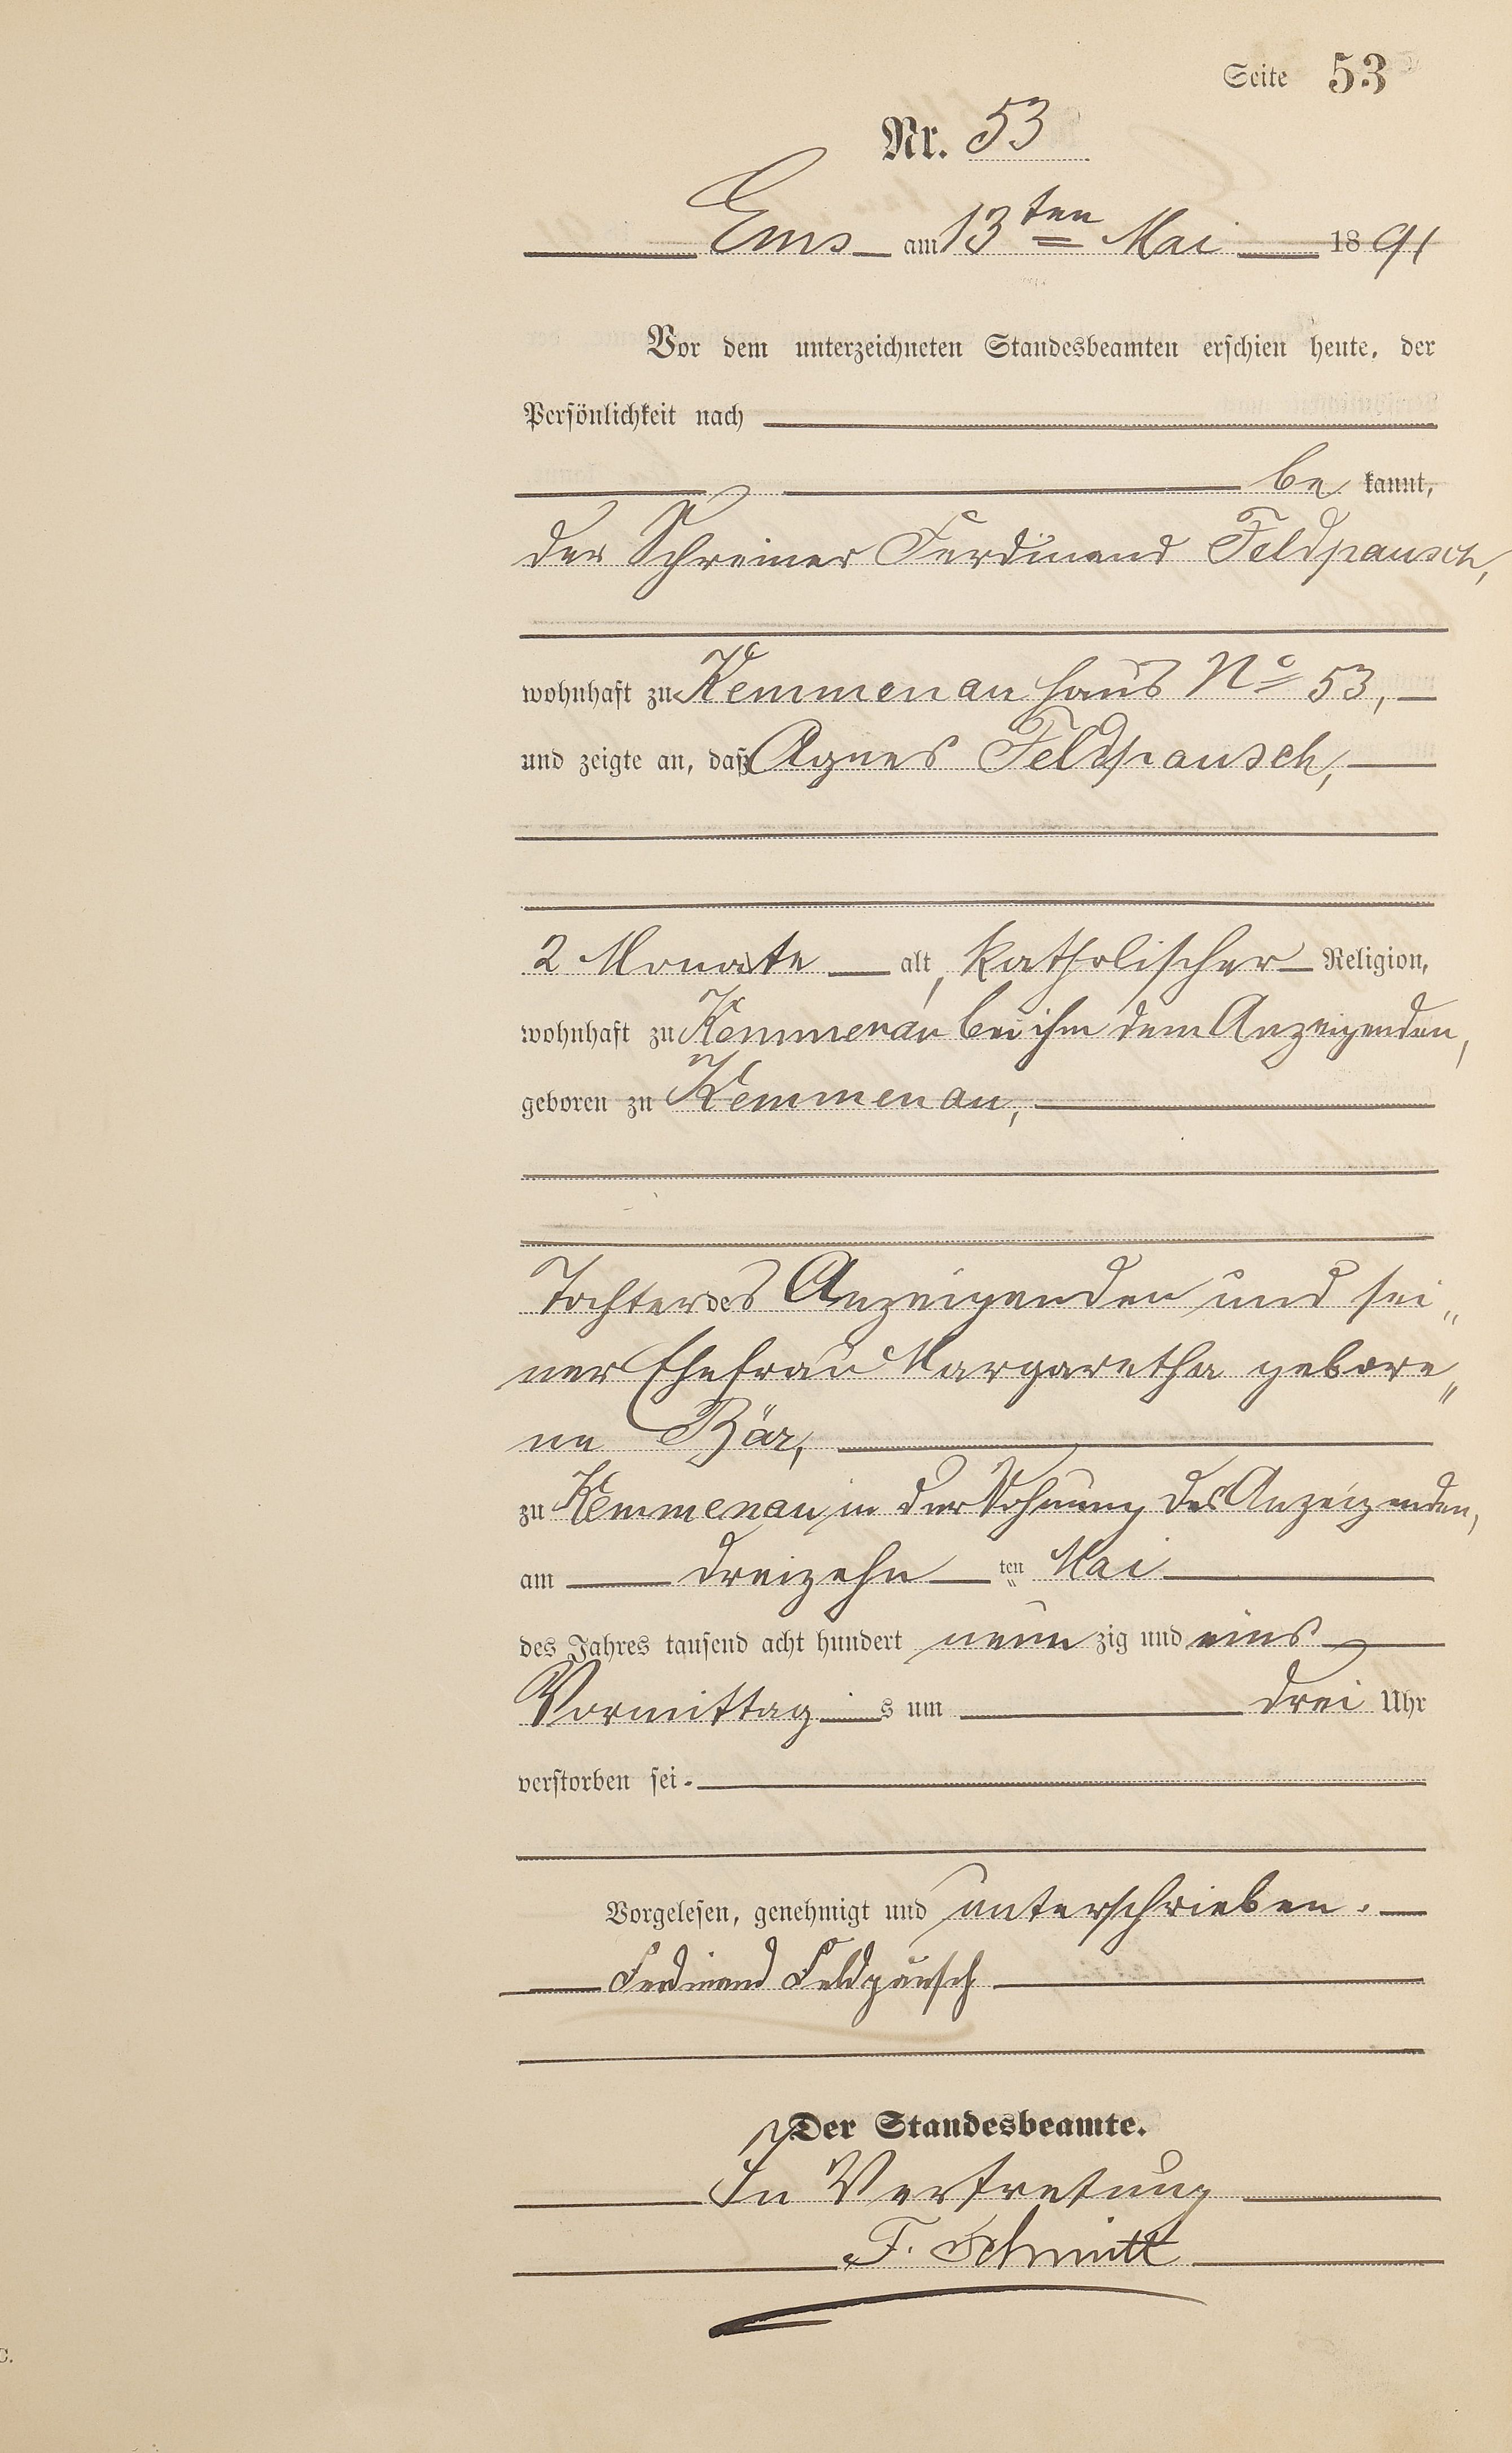 Seite 53
Nr. 53
Ems am 13ten Mai 1891
Vor dem unterzeichneten Standesbeamten erschien heute, der
Persönlichkeit nach
be kannt,
der Schreiner Ferdinand Feldpausch,
wohnhaft zu Kemmenau Haus No 53,
und zeigte an, daß Agnes Feldpausch,
2 Monate alt, katholischer Religion,
wohnhaft zu Kemmenau bei ihm dem Anzeigenden,
geboren zu Kemmenau,
Tochter des Anzeigenden und sei„
ner Ehefrau Margaretha gebore„
ne Bär,
zu Kemmenau, in der Wohnung des Anzeigenden,
am dreizehn ten Mai
des Jahres tausend acht hundert neun zig und eins
Vormittag s um drei Uhr
verstorben sei.
Vorgelesen, genehmigt und unterschrieben.
Ferdinand Feldpausch
Der Standesbeamte.
In Vertretung
F. Schmitt
C.